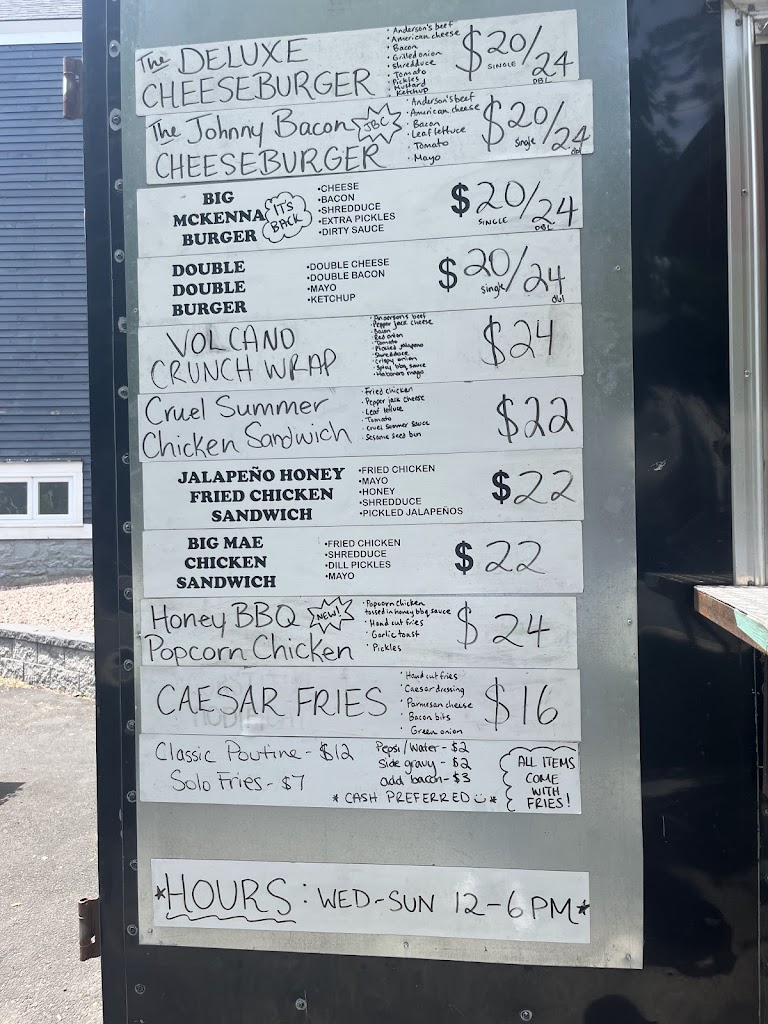 The DELUXE
CHEESEBURGER
• Anderson's beef
• American cheese
• Bacon
• Grilled onion
• Shredduce
• Tomato
• Pickles
• Mustard
• Ketchup
$20/24
SINGLE DBL
The Johnny Bacon JBC
CHEESEBURGER
• Anderson's beef
• American cheese
• Bacon
• Leaf lettuce
• Tomato
• Mayo
$20/24
Single dbl
BIG
MCKENNA
BURGER
IT'S
BACK
•CHEESE
•BACON
•SHREDDUCE
•EXTRA PICKLES
•DIRTY SAUCE
$20/24
SINGLE DBL
DOUBLE
DOUBLE
BURGER
•DOUBLE CHEESE
•DOUBLE BACON
•MAYO
•KETCHUP
$20/24
single dbl
VOLCANO
CRUNCH WRAP
• Anderson's beef
• Pepper jack cheese
• Bacon
• Red onion
• Tomato
• Pickled jalapeno
• Shredduce
• Crispy onion
• Spicy bbq sauce
• Habanero mayo
$24
Cruel Summer
Chicken Sandwich
• Fried chicken
• Pepper jack cheese
• Leaf lettuce
• Tomato
• Cruel Summer Sauce
• Sesame seed bun
$22
JALAPEÑO HONEY
FRIED CHICKEN
SANDWICH
•FRIED CHICKEN
•MAYO
•HONEY
•SHREDDUCE
•PICKLED JALAPEÑOS
$22
BIG MAE
CHICKEN
SANDWICH
•FRIED CHICKEN
•SHREDDUCE
•DILL PICKLES
•MAYO
$22
Honey BBQ NEW!
Popcorn Chicken
• Popcorn chicken
tossed in honey bbq sauce
• Hand cut fries
• Garlic toast
• Pickles
$24
CAESAR FRIES
• Hand cut fries
• Caesar dressing
• Parmesan cheese
• Bacon bits
• Green onion
$16
Classic Poutine - $12
Solo Fries - $7
Pepsi/Water - $2
Side gravy - $2
add bacon - $3
* CASH PREFERRED *
ALL ITEMS
COME
WITH
FRIES!
*HOURS: WED-SUN 12-6PM*